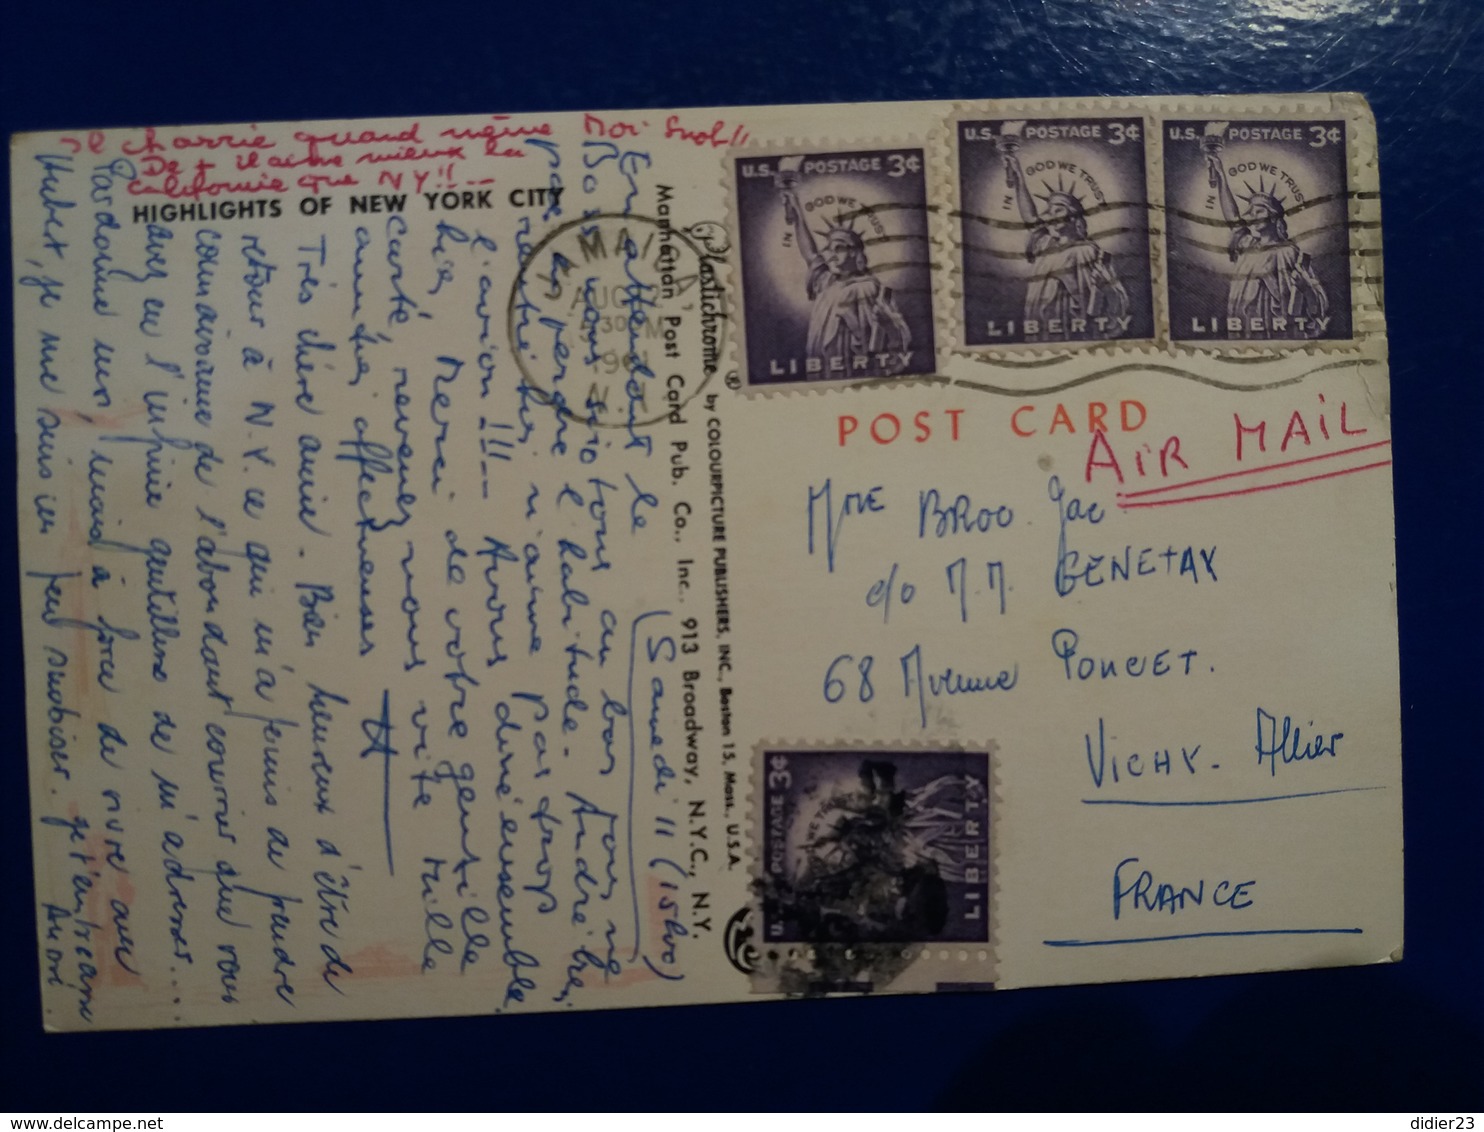 Il charrie quand même Moi Snob!!
De + il aime mieux la
Californie que NY!!--
HIGHLIGHTS OF NEW YORK CITY
Très chère amie. Bien heureux d'être de
retour à N.Y. ce qui m'a permis de prendre
connaissance de l'abondant courrier que vous
avez eu l'infinie gentillesse de m'adresser...
Pardonne moi, mais à force de vivre avec
Hubert, je me sens un peu snobiser. Je t'embrasse
En attendant le (Samedi 11 (15h00)
Boss nous sio tous au bas pour ne
pas en perdre l'habitude. André hier,
rentré hier, n'aime pas trop
l'avion!!!-- Avons diné ensemble
hier, Merci de votre gentille
carte, revenez nous vite Mille
amitiés affectueuses H
Plastichrome ® by COLOURPICTURE PUBLISHERS, INC., Boston 15, Mass., U.S.A.
Manhattan Post Card Pub. Co., Inc., 913 Broadway, N.Y.C., N.Y.
JAMAICA
AUG
30 PM
196
N.Y.
U.S. POSTAGE 3¢
IN GOD WE TRUST
LIBERTY
U.S. POSTAGE 3¢
IN GOD WE TRUST
LIBERTY
U.S. POSTAGE 3¢
IN GOD WE TRUST
LIBERTY
POST CARD
AIR MAIL
Mme BROC Jac
c/o M.M. GENETAY
68 Avenue PONCET.
VICHY. Allier
FRANCE
U.S. POSTAGE 3¢
WE TRUST
LIBERTY
didier23